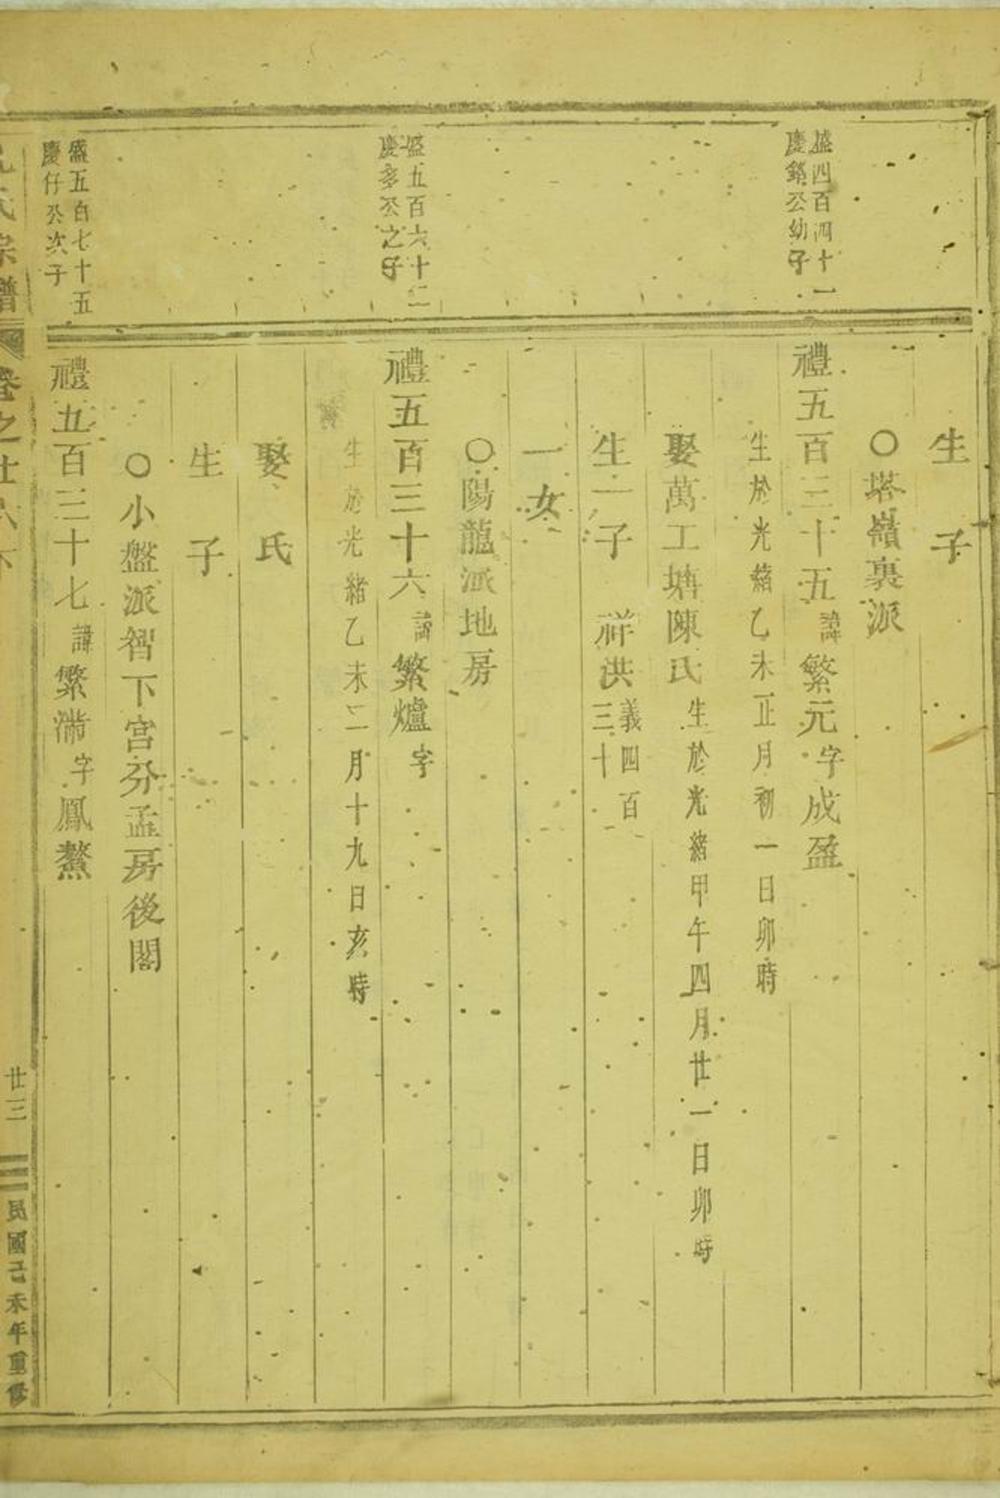 生　子
○塔嶺裏派
盛四百四十一
慶鎔公幼子
禮五百三十五諱繁元字成盈
生於光緒乙未正月初一日卯時
娶萬工塘陳氏生於光緒甲午四月廿一日卯時
生一子　祥洪義四百三十
一女
○陽龍派地房
盛五百六十二
慶多公之子
禮五百三十六諱繁爐字
生於光緒乙未二月十九日亥時
娶　氏
生　子
○小盤派智下宮分孟房後閣
盛五百七十五
慶仔公次子
禮五百三十七諱繁滿字鳳鰲
氏宗譜
卷之廿六下
廿三
民國己未年重修